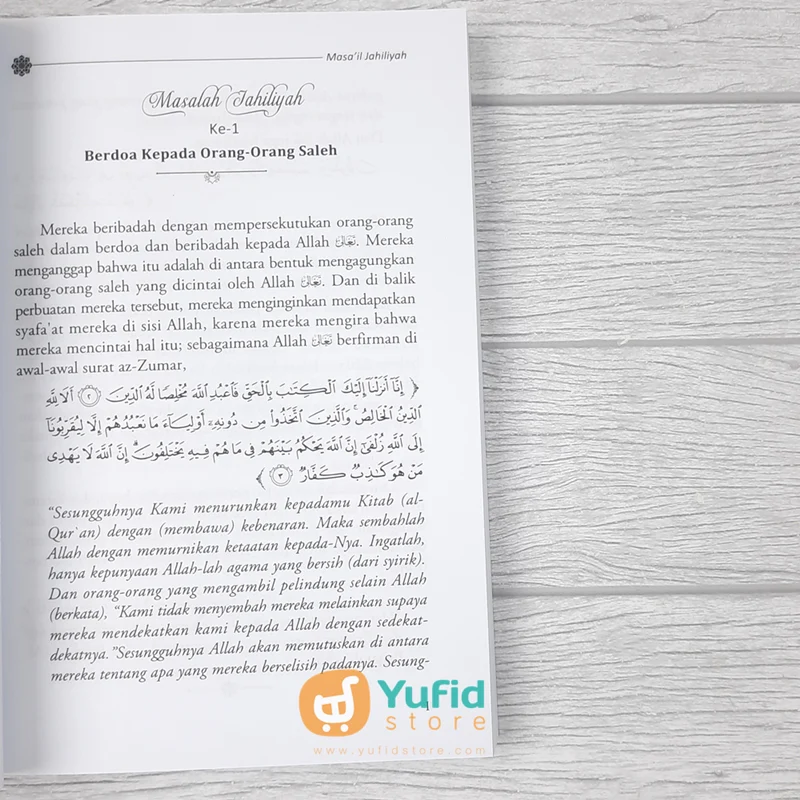 Masa'il Jahiliyah
Masalah Jahiliyah
Ke-1
Berdoa Kepada Orang-Orang Saleh
Mereka beribadah dengan mempersekutukan orang-orang
saleh dalam berdoa dan beribadah kepada Allah تَعَالَى. Mereka
menganggap bahwa itu adalah di antara bentuk mengagungkan
orang-orang saleh yang dicintai oleh Allah تَعَالَى. Dan di balik
perbuatan mereka tersebut, mereka menginginkan mendapatkan
syafa'at mereka di sisi Allah, karena mereka mengira bahwa
mereka mencintai hal itu; sebagaimana Allah تَعَالَى berfirman di
awal-awal surat az-Zumar,
﴿ إِنَّا أَنزَلْنَا إِلَيْكَ الْكِتَٰبَ بِالْحَقِّ فَاعْبُدِ اللَّهَ مُخْلِصًا لَّهُ الدِّينَ ۝٢ أَلَا لِلَّهِ
الدِّينُ الْخَالِصُ ۚ وَالَّذِينَ اتَّخَذُوا مِن دُونِهِۦٓ أَوْلِيَآءَ مَا نَعْبُدُهُمْ إِلَّا لِيُقَرِّبُونَآ
إِلَى اللَّهِ زُلْفَىٰٓ إِنَّ اللَّهَ يَحْكُمُ بَيْنَهُمْ فِى مَا هُمْ فِيهِ يَخْتَلِفُونَ ۗ إِنَّ اللَّهَ لَا يَهْدِى
مَنْ هُوَ كَٰذِبٌ كَفَّارٌ ۝٣ ﴾
"Sesungguhnya Kami menurunkan kepadamu Kitab (al-
Qur'an) dengan (membawa) kebenaran. Maka sembahlah
Allah dengan memurnikan ketaatan kepada-Nya. Ingatlah,
hanya kepunyaan Allah-lah agama yang bersih (dari syirik).
Dan orang-orang yang mengambil pelindung selain Allah
(berkata), "Kami tidak menyembah mereka melainkan supaya
mereka mendekatkan kami kepada Allah dengan sedekat-
dekatnya."Sesungguhnya Allah akan memutuskan di antara
mereka tentang apa yang mereka berselisih padanya. Sesung-
1
Yufid
store
www.yufidstore.com